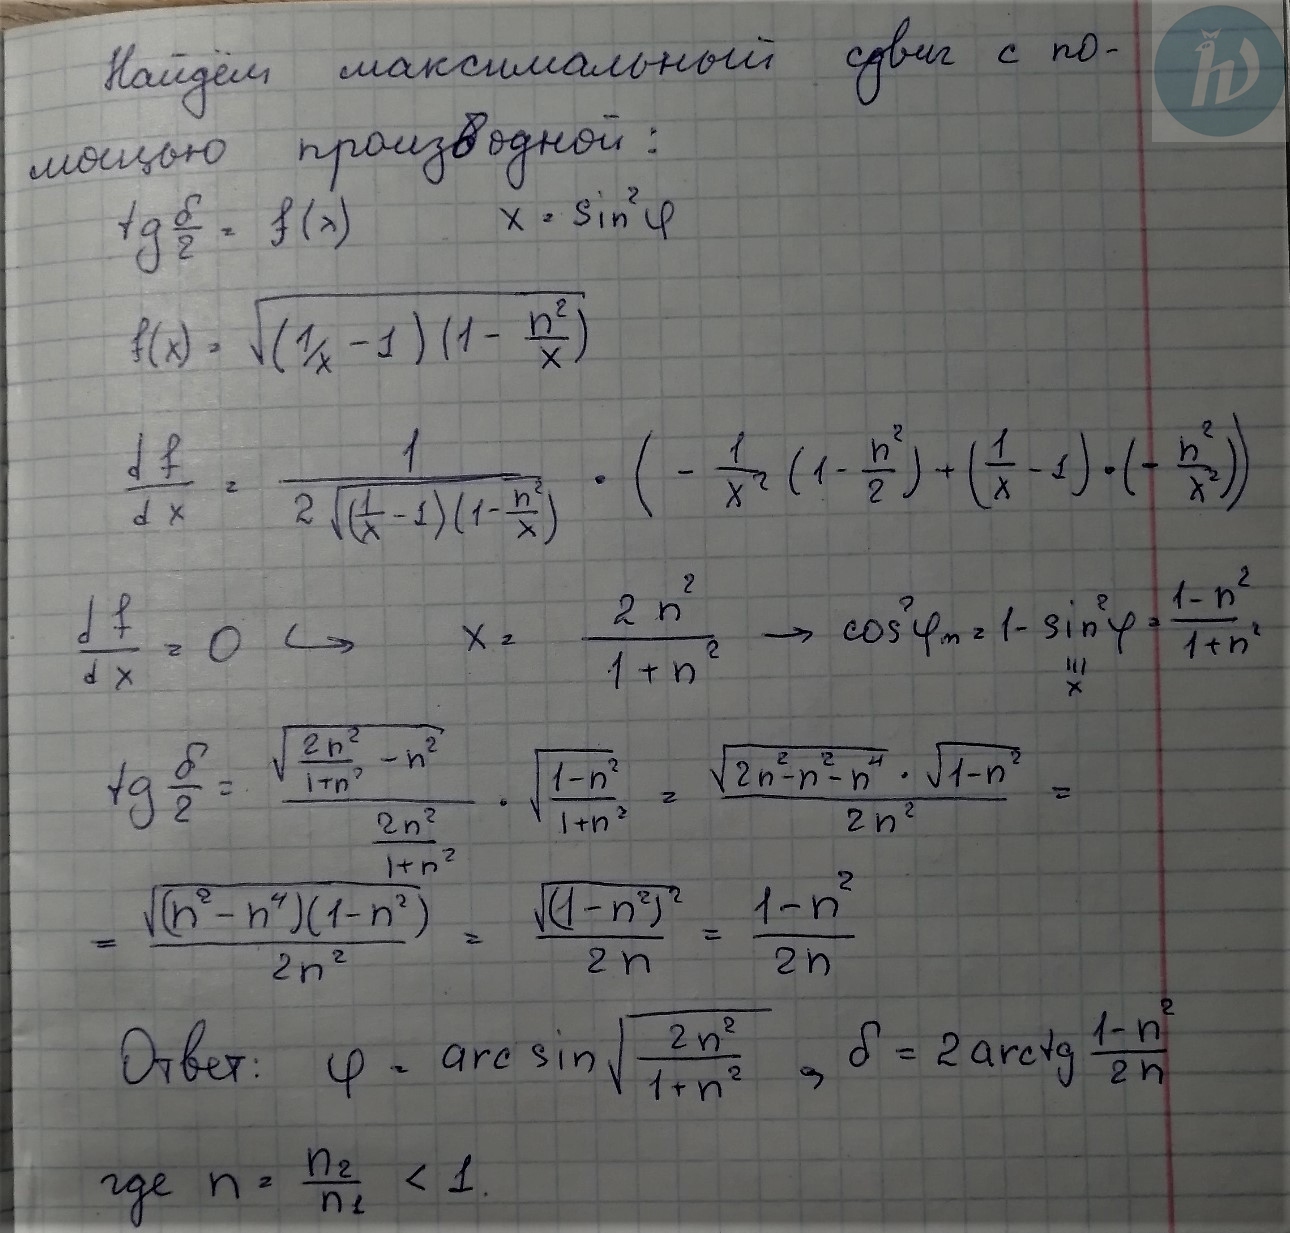 Найдём максимальный сдвиг с по-
мощью производной:
tg δ/2 = f(x) x = sin²φ
f(x) = √((1/x - 1)(1 - n²/x))
df/dx = 1/(2√((1/x - 1)(1 - n²/x))) · (- 1/x² (1 - n²/2) + (1/x - 1)·(- n²/x²))
df/dx = 0 ↪ x = 2n²/(1+n²) → cos²φₘ = 1 - sin²φ = (1-n²)/(1+n²)
x
tg δ/2 = √(2n²/(1+n²) - n²)/(2n²/(1+n²)) · √((1-n²)/(1+n²)) = (√(2n²-n²-n⁴) · √(1-n²))/(2n²) =
= √((n²-n⁴)(1-n²))/(2n²) = √((1-n²)²)/(2n) = (1-n²)/(2n)
Ответ: φ = arcsin√(2n²/(1+n²)), δ = 2arctg (1-n²)/(2n)
где n = n₂/n₁ < 1.